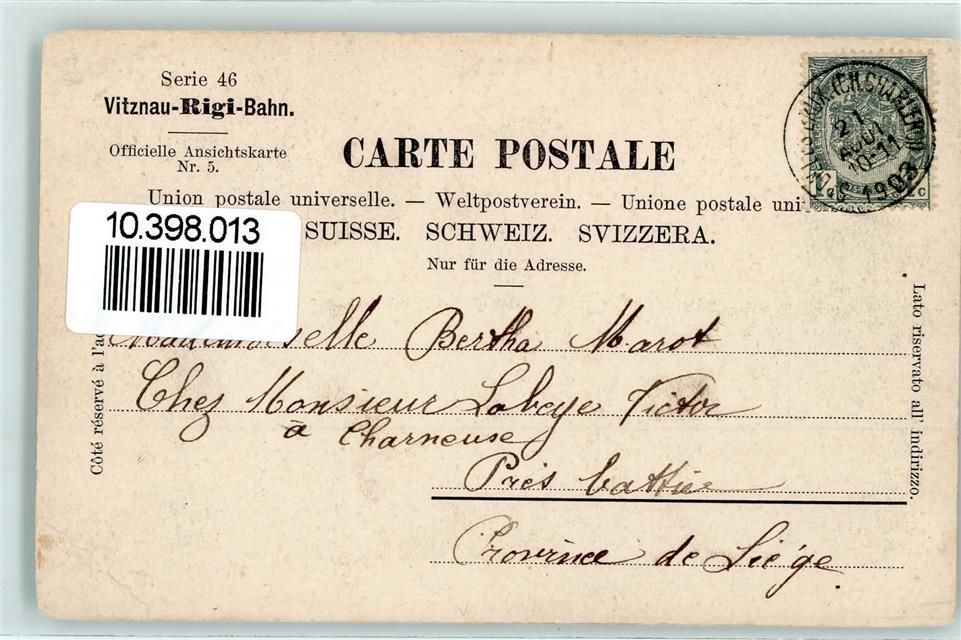 Serie 46
Vitznau-Rigi-Bahn.
Officielle Ansichtskarte
Nr. 5.
CARTE POSTALE
Union postale universelle. — Weltpostverein. — Unione postale uni
SUISSE. SCHWEIZ. SVIZZERA.
Nur für die Adresse.
10.398.013
21
AOUT
10-11
1903
Côté réservé à l'ad
Lato riservato all' indirizzo.
Mademoiselle Bertha Marot
Chez Monsieur Labeye Victor
à Charneuse
Près battice
Province de Liége